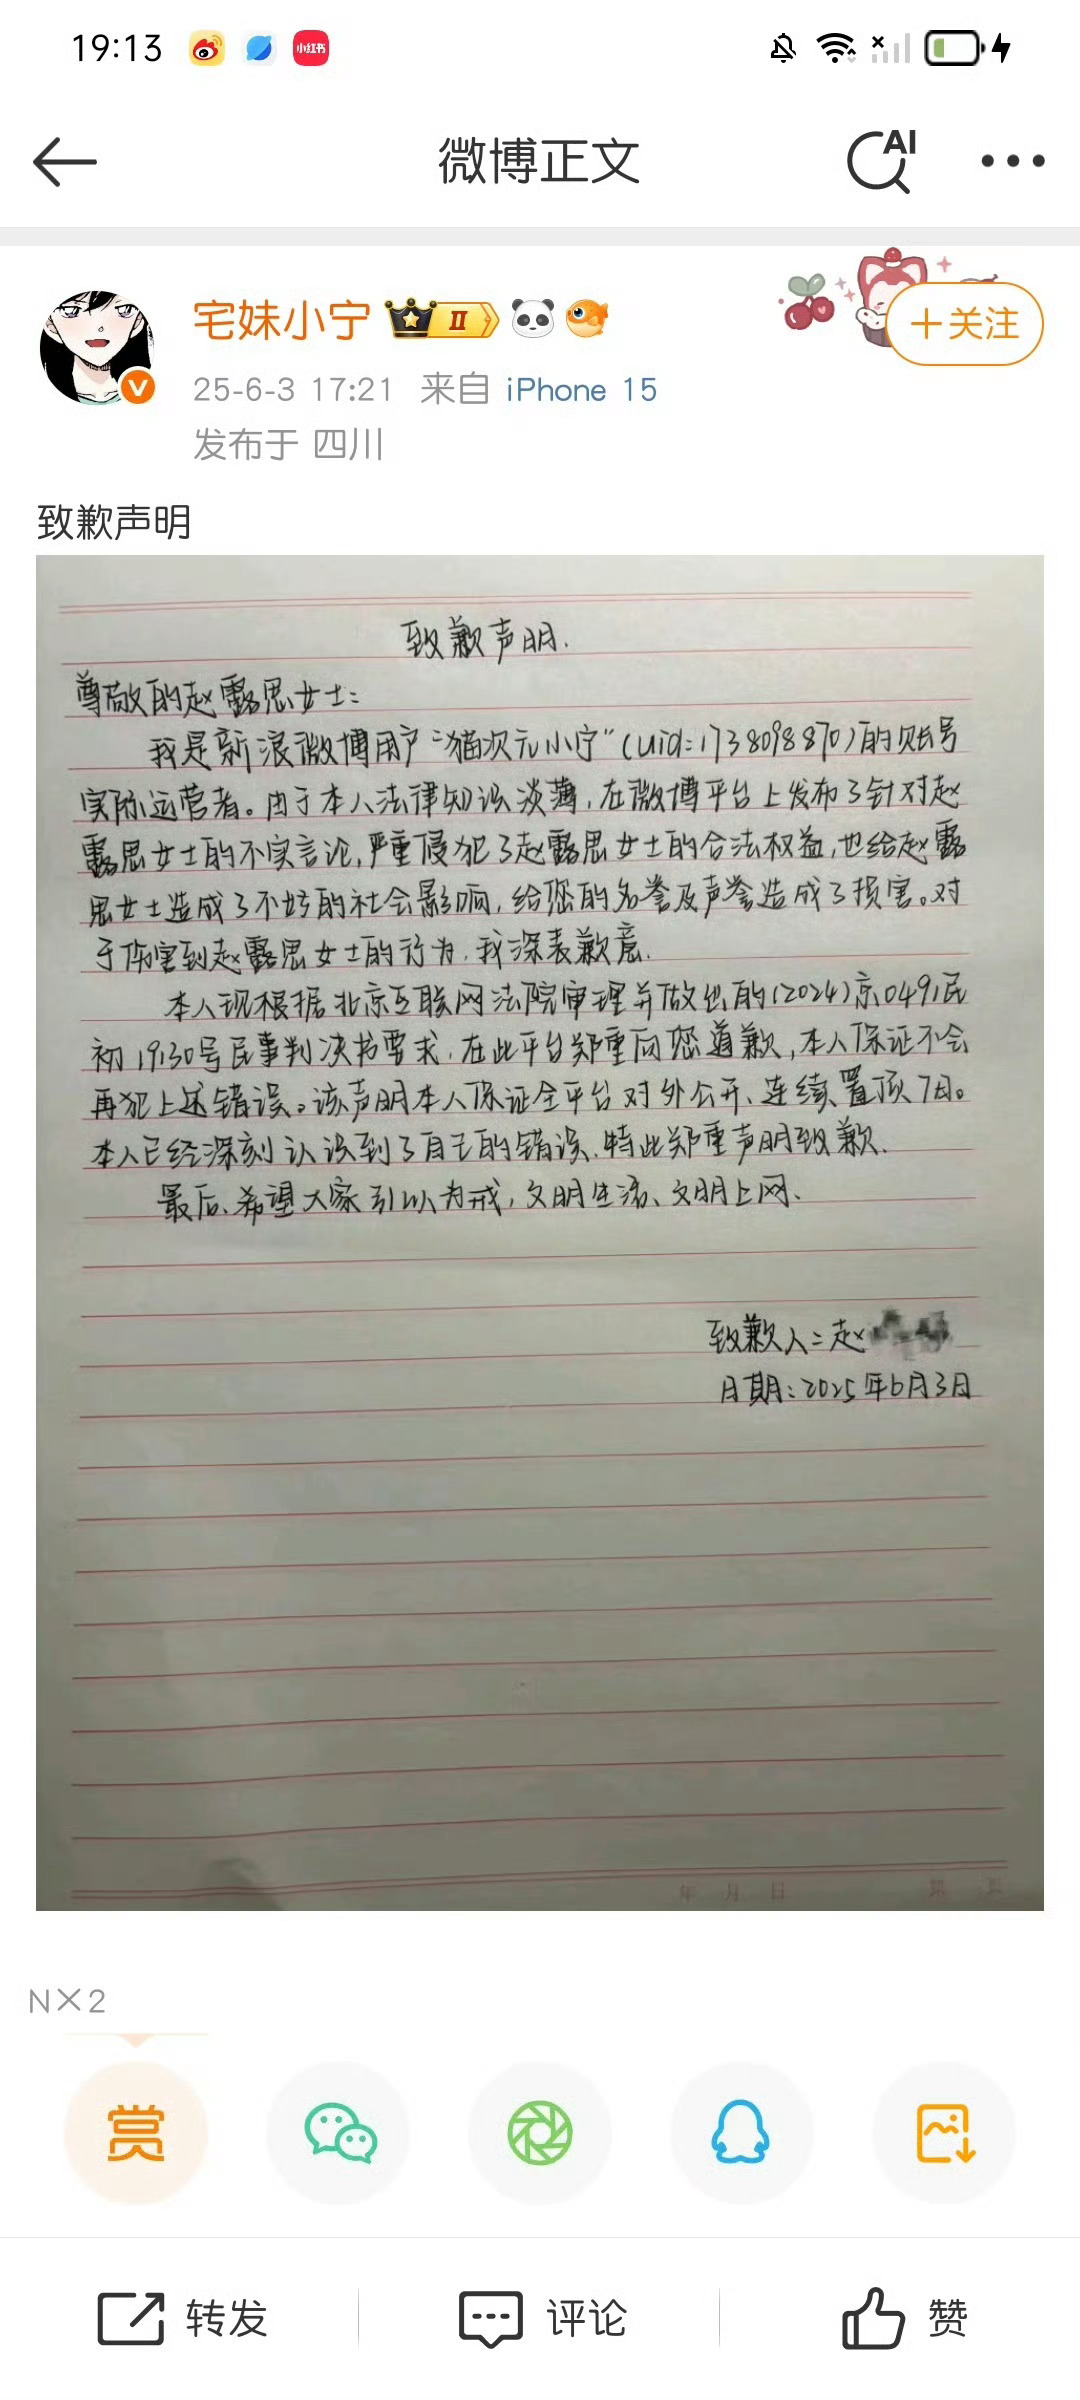 19:13
小红书
微博正文
AI
宅妹小宁
II
+关注
25-6-3 17:21 来自 iPhone 15
发布于 四川
致歉声明
致歉声明.
尊敬的赵露思女士:
我是新浪微博用户“猫次元小宁”(uid:1738098870)的账号
实际运营者。由于本人法律知识淡薄,在微博平台上发布了针对赵
露思女士的不实言论,严重侵犯了赵露思女士的合法权益,也给赵露
思女士造成了不好的社会影响,给您的名誉及声誉造成了损害。对
于伤害到赵露思女士的行为,我深表歉意.
本人现根据北京互联网法院审理并做出的(2024)京0491民
初19130号民事判决书要求,在此平台郑重向您道歉,本人保证不会
再犯上述错误。该声明本人保证全平台对外公开、连续置顶7日。
本人已经深刻认识到了自己的错误、特此郑重声明致歉.
最后、希望大家引以为戒,文明生活、文明上网、
致歉人:赵
日期:2025年6月3日
年 月 日 第 页
N×2
赏
转发
评论
赞